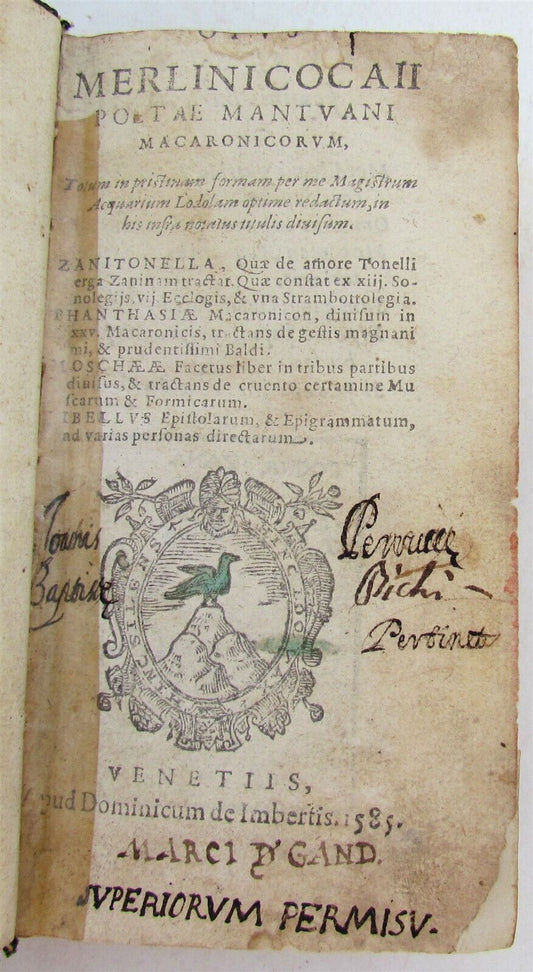 OPVS
MERLINI COCAII
POETAE MANTVANI
MACARONICORVM,
Totum in pristinam formam per me Magistrum
Acquarium Lodolam optime redactum, in
his infra notatus titulis diuisum.
ZANITONELLA, Quæ de amore Tonelli
erga Zaninam tractat. Quæ constat ex xiij. So-
nolegijs, vij. Ecclogis, & vna Strambottolegia.
PHANTHASIÆ Macaronicon, diuisum in
xxv. Macaronicis, tractans de gestis magnani
mi, & prudentissimi Baldi.
MOSCHÆÆ Facetus liber in tribus partibus
diuisus, & tractans de cruento certamine Mu
scarum & Formicarum.
LIBELLVS Epistolarum, & Epigrammatum,
ad varias personas directarum.
Ioannis
Baptistæ
Bichi
VENETIIS,
Apud Dominicum de Imbertis. 1585.
MARCI D' GAND.
SVPERIORVM PERMISV.